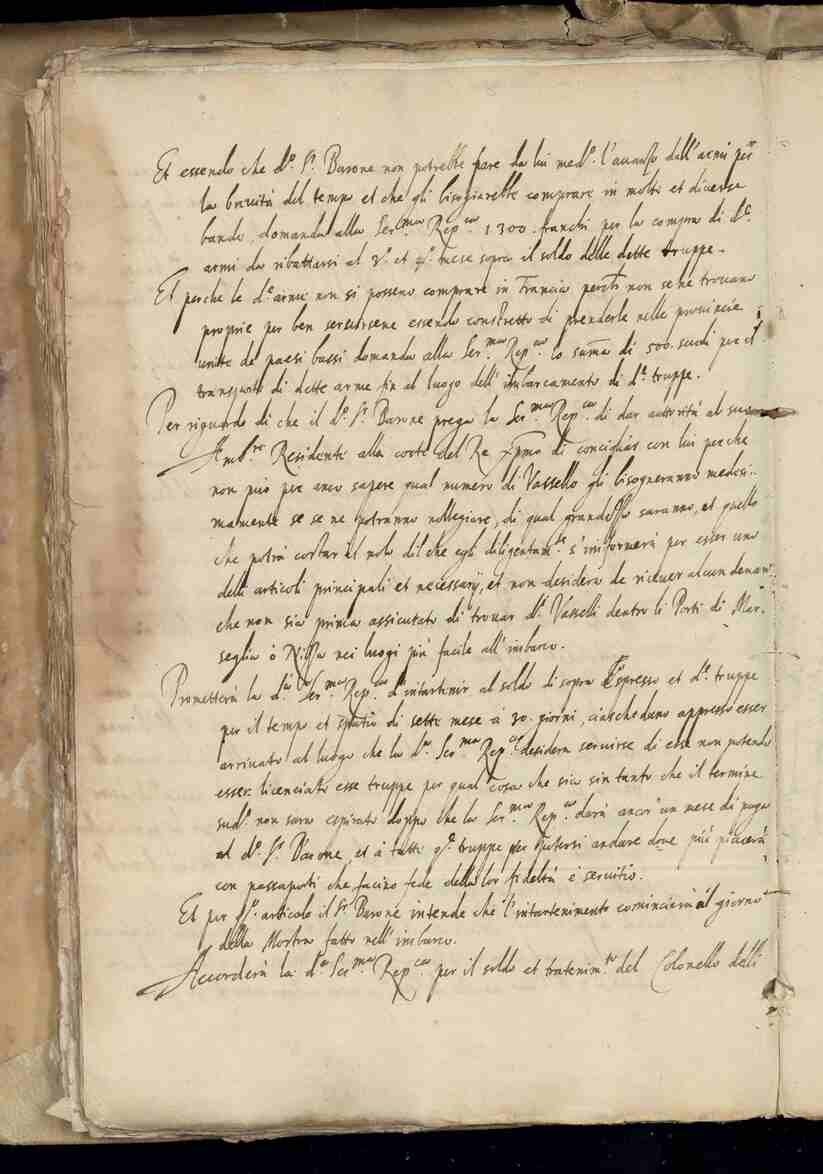 Et essendo che d.º S.r Barone non potrebbe fare da lui med.º l'auanzo dell'armi per
la breuità del tempo et che gli bisogiarebbe comprare in molti et diuerse
bande, domanda alla Ser.ma Rep.ca 1300. franchi per la compra di d.e
armi da ribattersi al 3.º et 4.º mese sopra il soldo delle dette truppe.
Et perche le d.e arme non si posseno comprare in Francia perche non se ne trouano
proprie per ben seruirsene essendo constretto di prenderle nelle prouincie
unite de paesi bassi domanda alla Ser.ma Rep.ca la suma di 500. scudi per il
transporto di dette arme fin al luogo dell'imbarcamento di d.e truppe.
Per riguardo di che il d.º S.r Barone prega la Ser.ma Rep.ca di dar autorità al suo
Amb.re Residente alla corte del Re Xpmo di conciliar con lui perche
non può per anco sapere qual numero di Vassello gli bisogneranno medesi-
mamente se se ne potranno nollegiare, di qual grandezza saranno, et quello
che potrà costar il nolo dil che egli diligentam.te s'informerà per esser uno
delli articoli principali et necessarij, et non desidera de riceuer alcun denaro
che non sia prima assicurato di trouar d.i Vasselli dentro li Porti di Mar-
seglia ò Nizza nei luogi più facile all'imbarco.
Prometterà la d.a Ser.ma Rep.ca d'intartenir al soldo di sopra Espresso et d.e truppe
per il tempo et spatio di sette mese à 30. giorni, ciascheduno appresso esser
arriuato al luogo che la d.a Ser.ma Rep.ca desidera seruirse di esse non potendo
esser licenciato esse truppe per qual cosa che sia sin tanto che il termine
sud.º non sara espirato doppo che la Ser.ma Rep.ca darà ancor un mese di paga
al d.º S.r Barone, et à tutti q.e truppe per andare doue più piacerà
con passaporti che facino fede della lor fideltà è seruitio.
Et per q.º articolo il S.r Barone intende che l'intartenimento comincierà il giorno
della Mostra fatta nell'imbarco.
Accorderà la d.a Ser.ma Rep.ca per il soldo et tratenim.to del Colonello delli